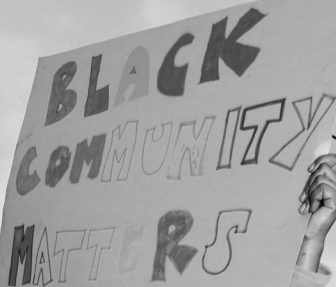 BLACK
COMMUNITY
MATTERS